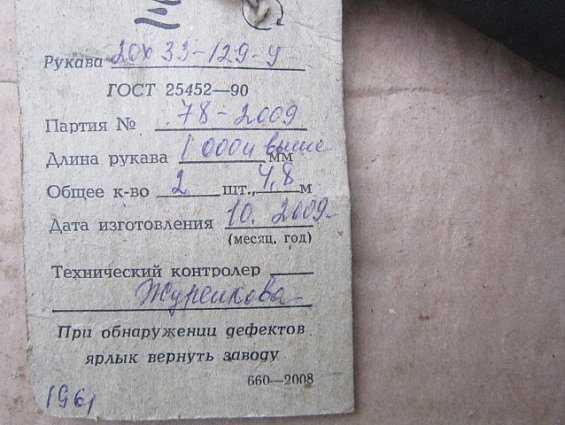 Рукава 20х33-129-У
ГОСТ 25452—90
Партия № 78-2009
Длина рукава 1000и выше мм
Общее к-во 2 шт., 4,8 м
Дата изготовления 10. 2009
(месяц, год)
Технический контролер
Журенкова
При обнаружении дефектов
ярлык вернуть заводу
660—2008
1961